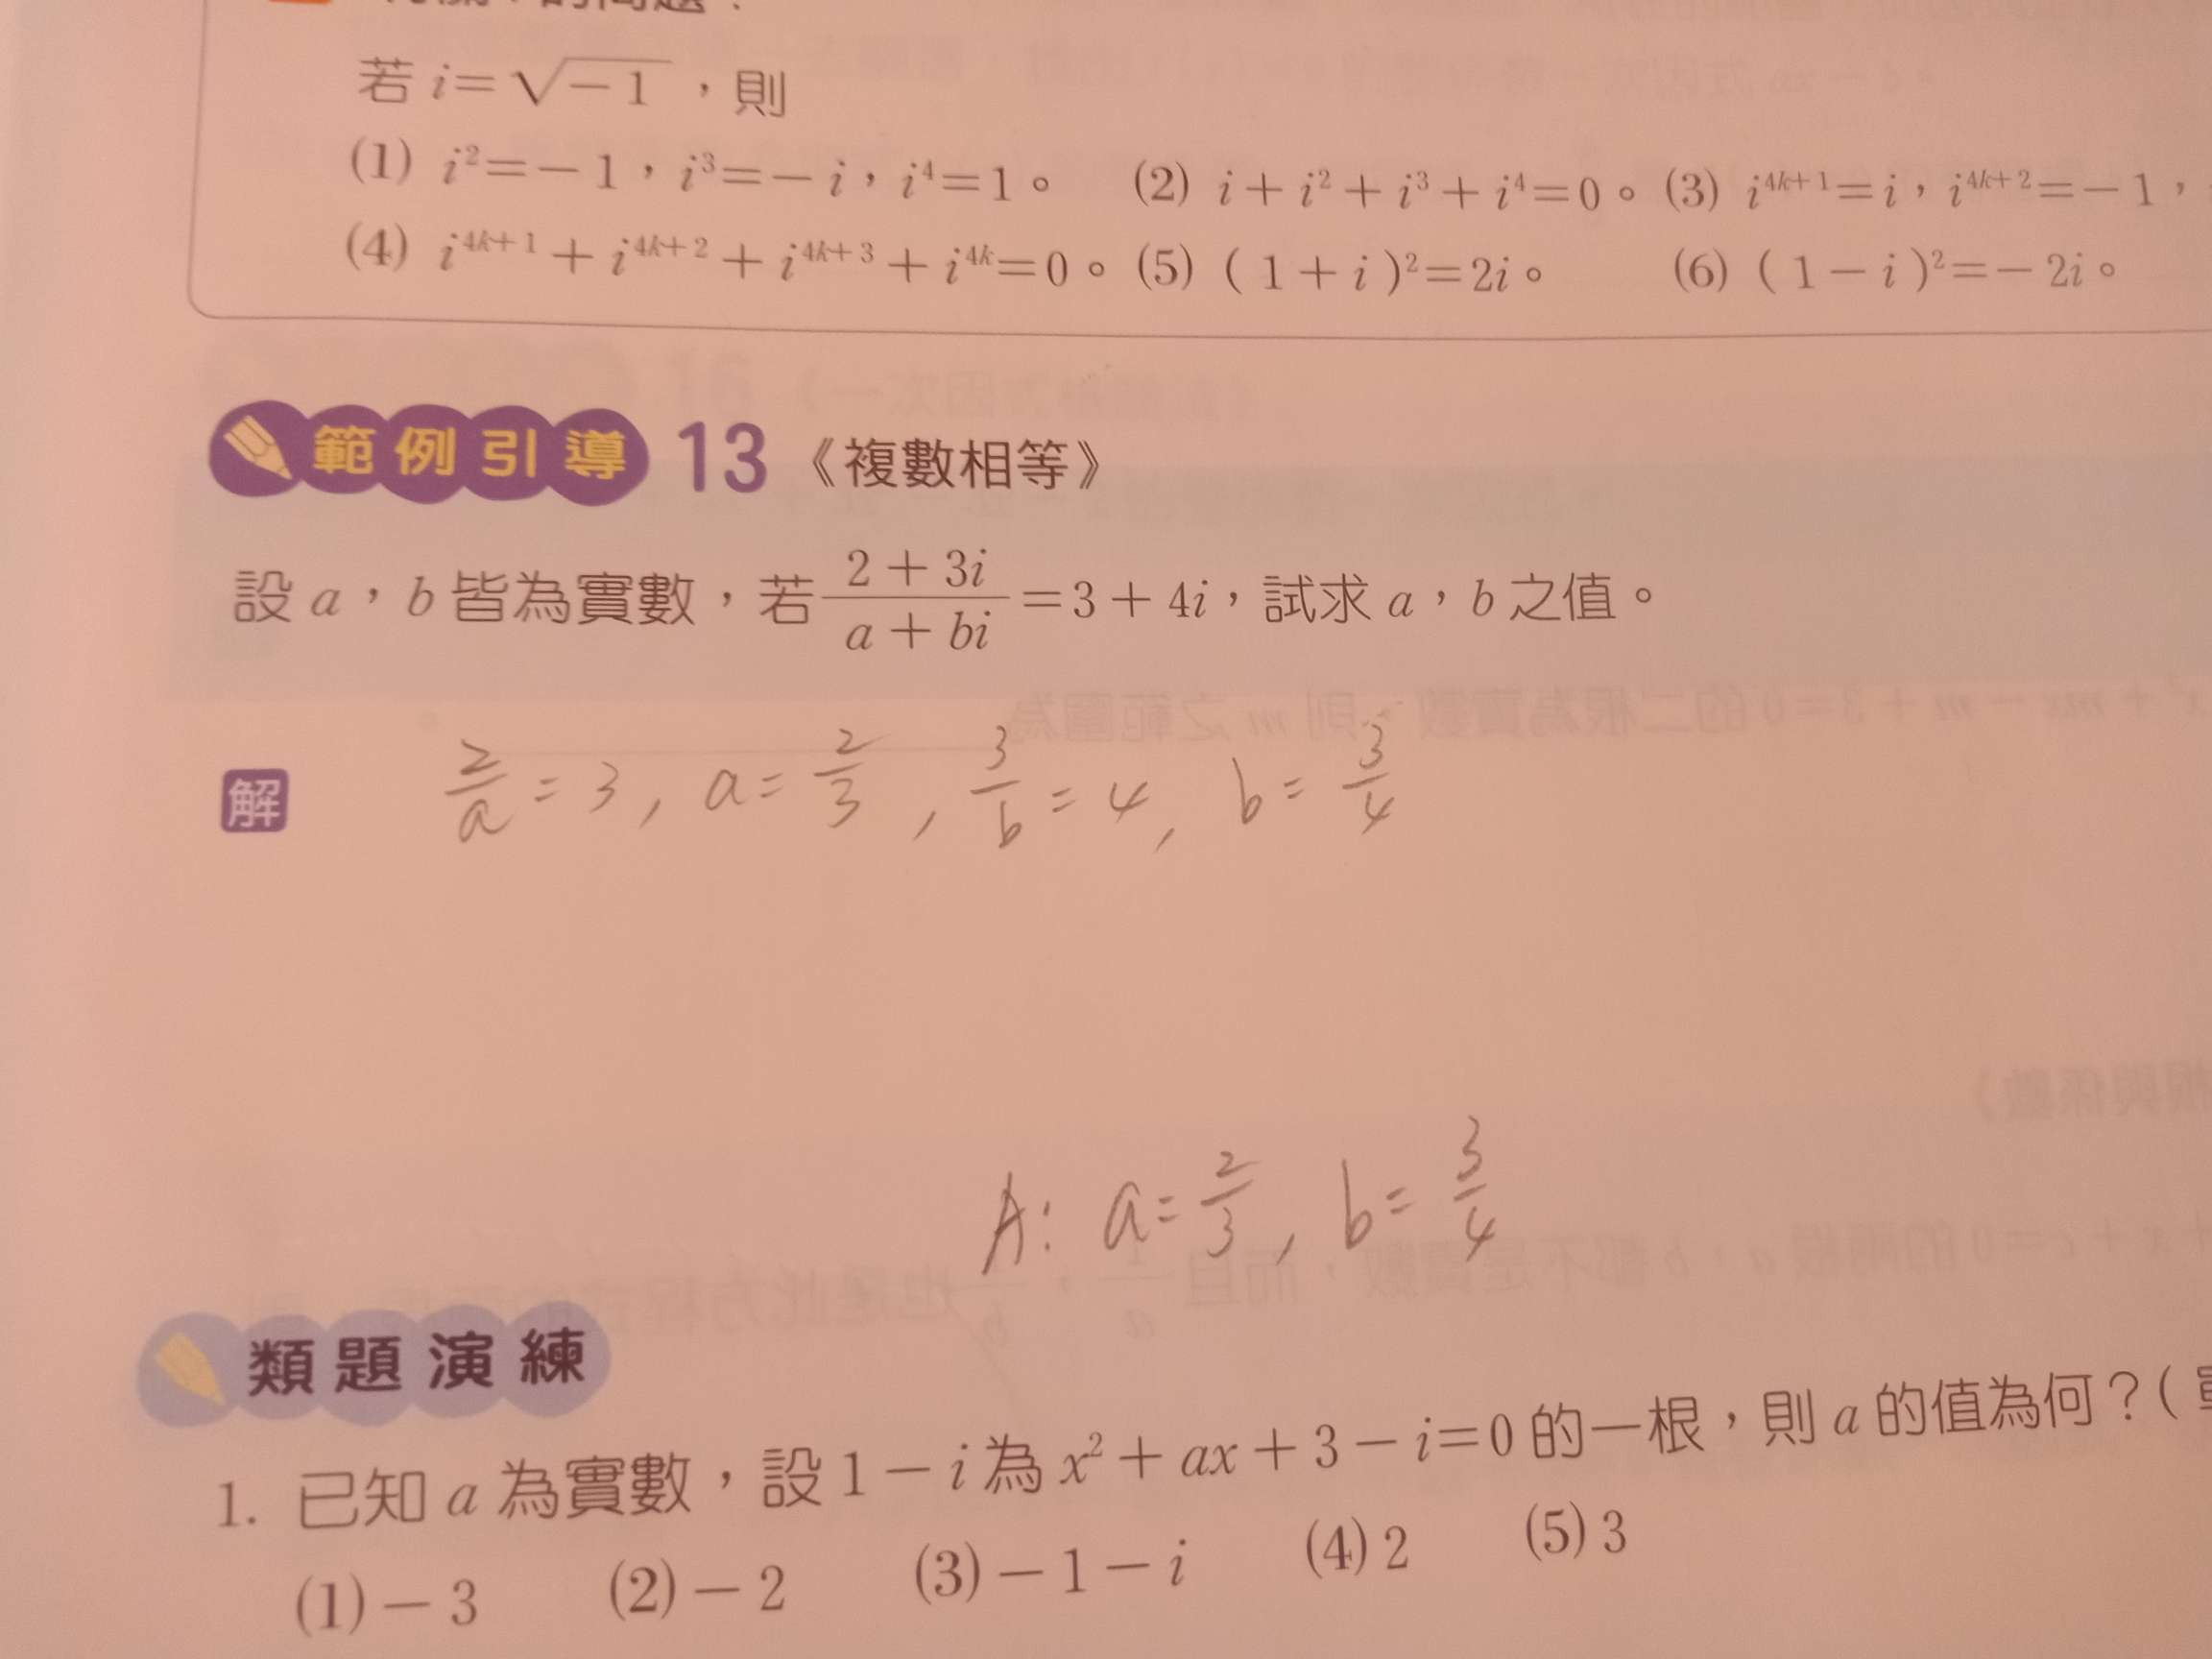 的問題：
若 i=√−1，則
(1) i²=−1，i³=−i，i⁴=1。 (2) i+i²+i³+i⁴=0。 (3) i⁴ᵏ⁺¹=i，i⁴ᵏ⁺²=−1，
(4) i⁴ᵏ⁺¹+i⁴ᵏ⁺²+i⁴ᵏ⁺³+i⁴ᵏ=0。 (5) (1+i)²=2i。 (6) (1−i)²=−2i。
範例引導 13 《複數相等》
設 a，b 皆為實數，若 (2+3i)/(a+bi) =3+4i，試求 a，b 之值。
解 2/a = 3, a= 2/3, 3/b = 4, b= 3/4
A: a= 2/3, b= 3/4
類題演練
1. 已知 a 為實數，設 1−i 為 x²+ax+3−i=0 的一根，則 a 的值為何？(
(1)−3 (2)−2 (3)−1−i (4) 2 (5) 3